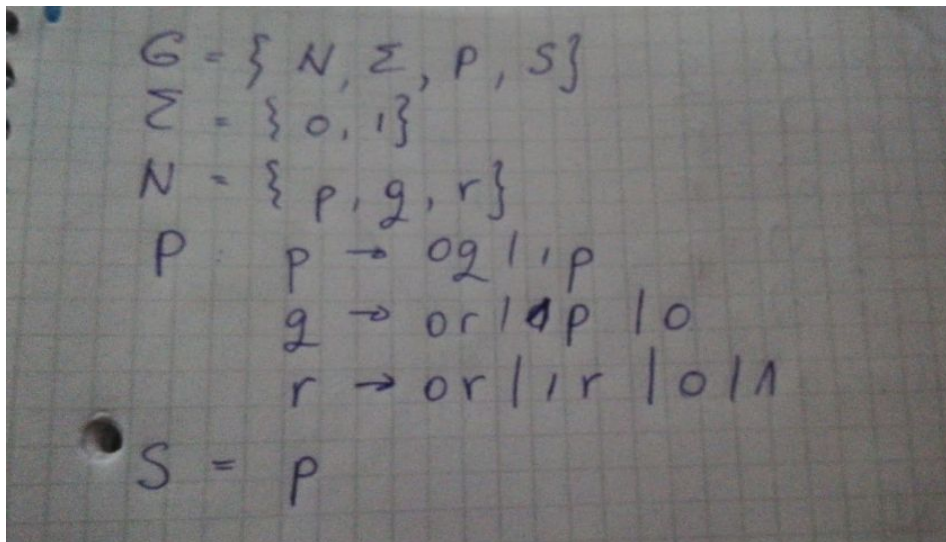 G = { N, Σ, P, S}
Σ = { 0, 1}
N = { p, q, r}
P: p → 0q | 1p
q → 0r | 1p | 0
r → 0r | 1r | 0 | 1
S = p